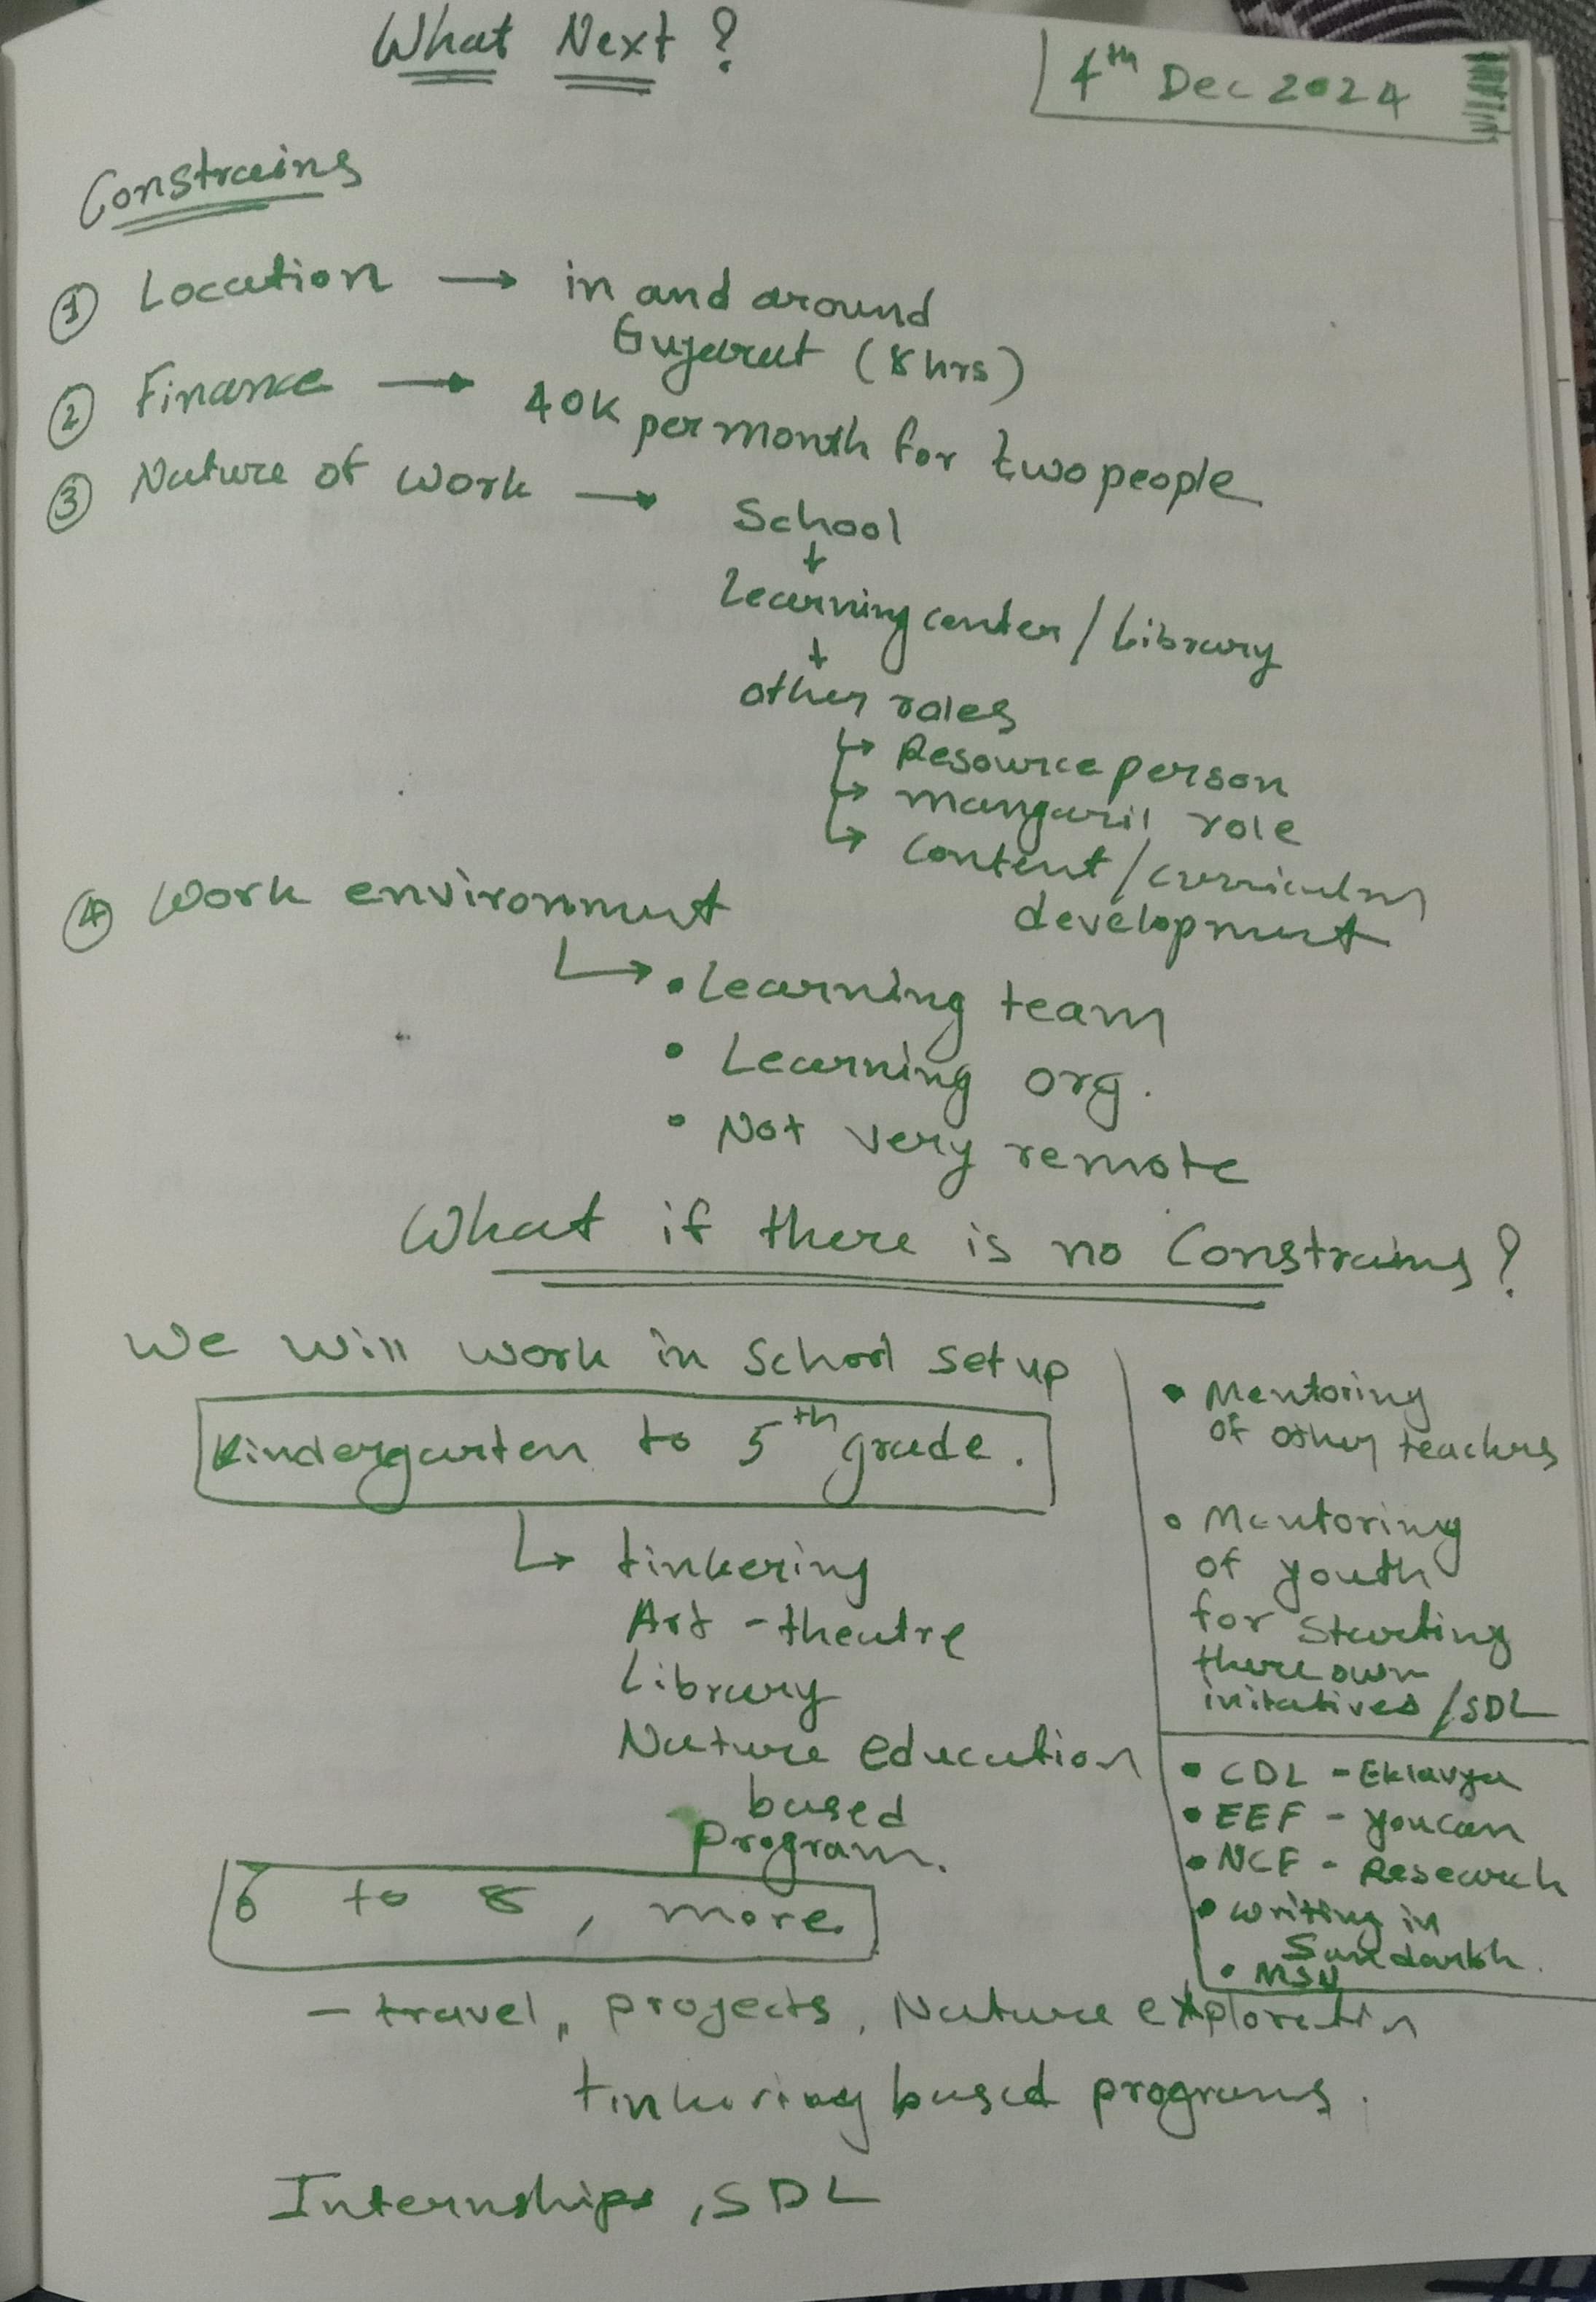 What Next ?
4th Dec 2024
Constrains
① Location → in and around
Gujarat (8 hrs)
② Finance → 40K per month for two people
③ Nature of work → School
+
Learning center / Library
+
other roles
↳ Resource person
↳ role
↳ Content / curriculum
development
④ Work environment
↳ • Learning team
• Learning org.
• Not very remote
What if there is no Constrains ?
We will work in School setup
Kindergarten to 5th grade.
↳ tinkering
Art - theatre
Library
Nature education
based
program.
6 to 8 , more
- travel, projects, Nature exploration
tinkering based programs.
Internships , SDL
• Mentoring
of other teachers
• Mentoring
of youth
for starting
there own
/ SDL
• CDL - Eklavya
• EEF - youcan
• NCF - Research
• writing in
Sandarbh.
• MSU